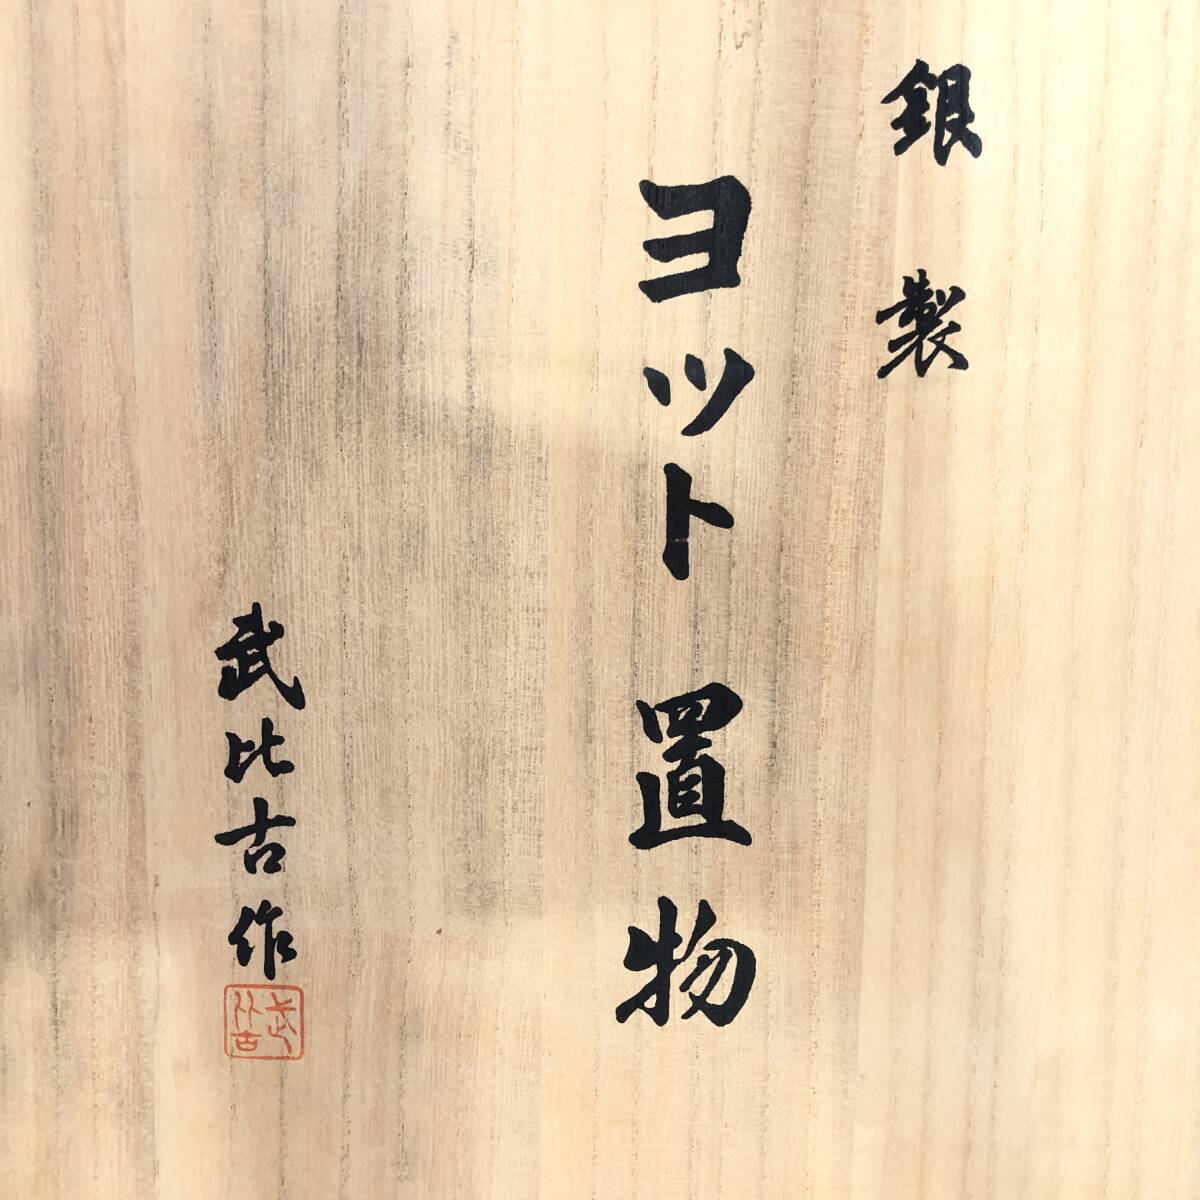 銀製
ヨット置物
武比古作
武比古